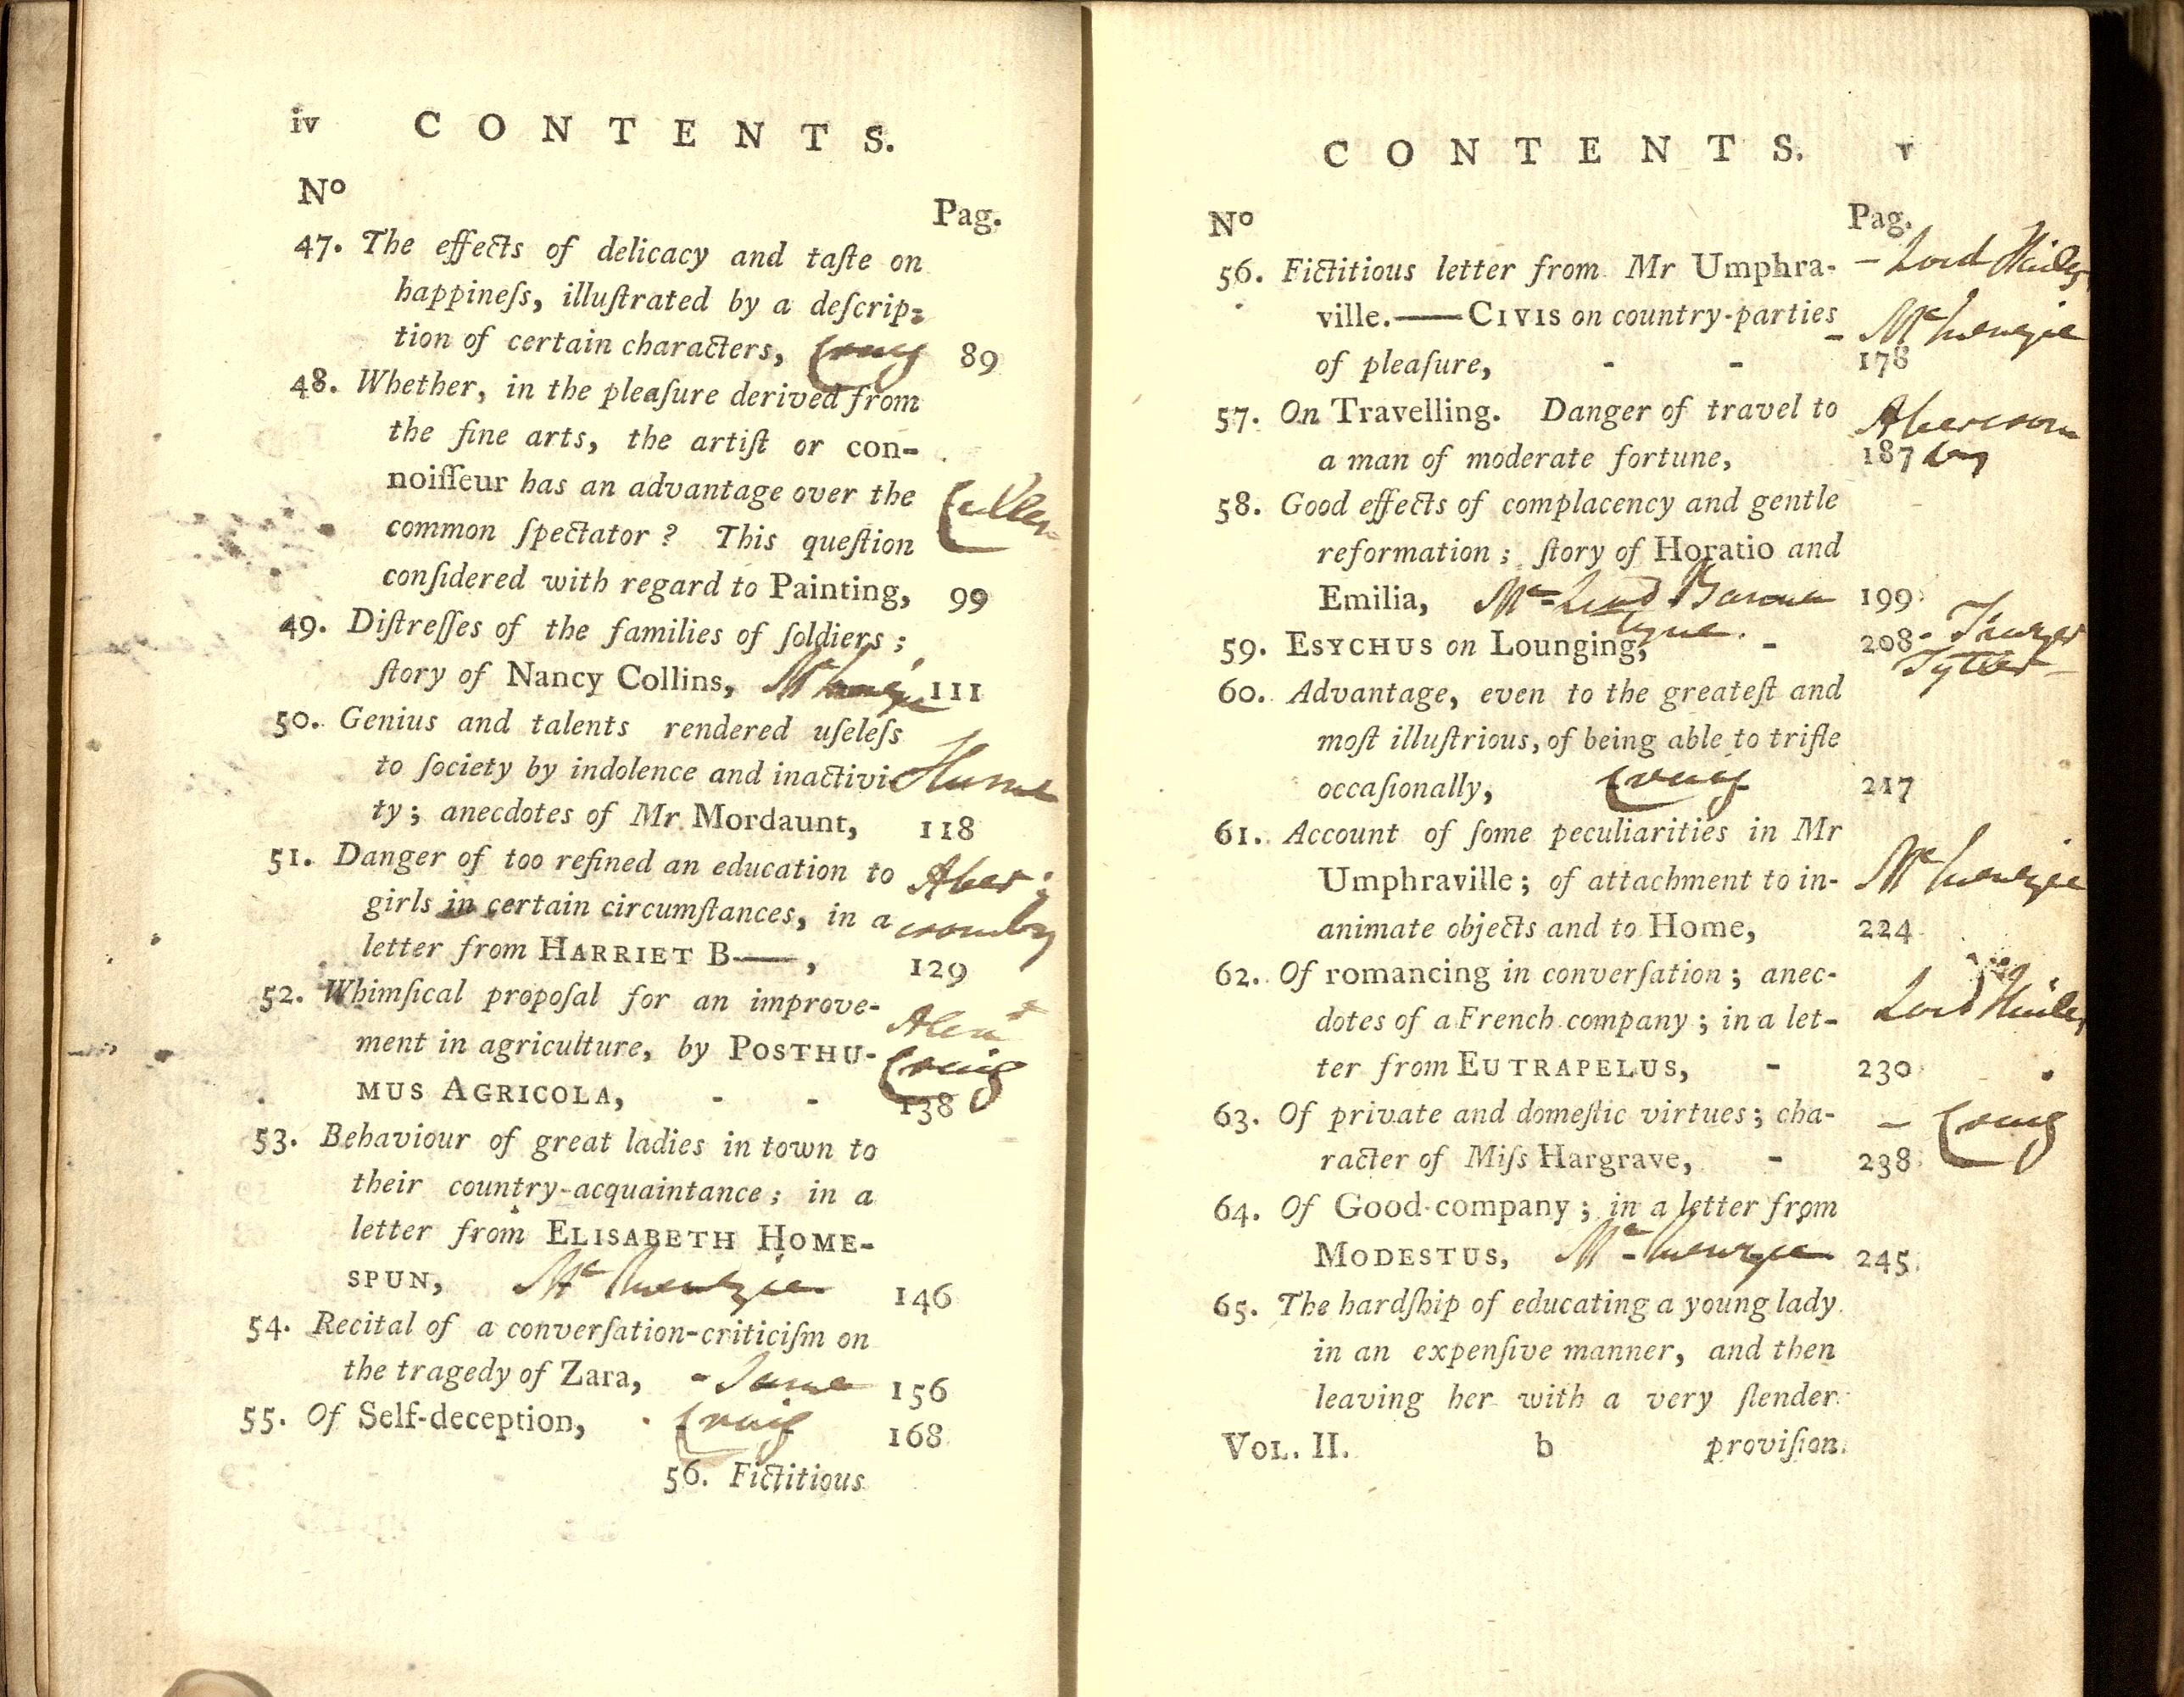 iv CONTENTS.
Nº
Pag.
47. The effects of delicacy and taſte on
happineſs, illuſtrated by a deſcrip-
tion of certain characters, Craig 89
48. Whether, in the pleaſure derived from
the fine arts, the artiſt or con-
noiſſeur has an advantage over the Cullen
common ſpectator? This queſtion
conſidered with regard to Painting, 99
49. Diſtreſſes of the families of ſoldiers;
ſtory of Nancy Collins, McKenzie 111
50. Genius and talents rendered uſeleſs
to ſociety by indolence and inactivi- Hume
ty; anecdotes of Mr Mordaunt, 118
51. Danger of too refined an education to Aber
girls in certain circumſtances, in a cromby
letter from HARRIET B——, 129
52. Whimſical propoſal for an improve-
ment in agriculture, by POSTHU- Craig
MUS AGRICOLA, - - 138
53. Behaviour of great ladies in town to
their country-acquaintance; in a
letter from ELISABETH HOME-
SPUN, McKenzie 146
54. Recital of a converſation-criticiſm on
the tragedy of Zara, - Same 156
55. Of Self-deception, Craig 168
56. Fictitious
CONTENTS. v
Nº Pag.
56. Fictitious letter from Mr Umphra- - Lord Hailes
ville.——CIVIS on country-parties - McKenzie
of pleaſure, - - 178
57. On Travelling. Danger of travel to Abercrom
a man of moderate fortune, 187 by
58. Good effects of complacency and gentle
reformation; ſtory of Horatio and
Emilia, Mc Leod Banna 199
tyne.
59. ESYCHUS on Lounging, - 208 - Frazer
Tytler
60. Advantage, even to the greateſt and
moſt illuſtrious, of being able to trifle
occaſionally, Craig 217
61. Account of ſome peculiarities in Mr
Umphraville; of attachment to in- McKenzie
animate objects and to Home, 224
62. Of romancing in converſation; anec-
dotes of a French company; in a let- Lord Hailes
ter from EUTRAPELUS, - 230
63. Of private and domeſtic virtues; cha- - Craig
racter of Miſs Hargrave, - 238
64. Of Good-company; in a letter from
MODESTUS, McKenzie 245
65. The hardſhip of educating a young lady
in an expenſive manner, and then
leaving her with a very ſlender
VOL. II. b proviſion.